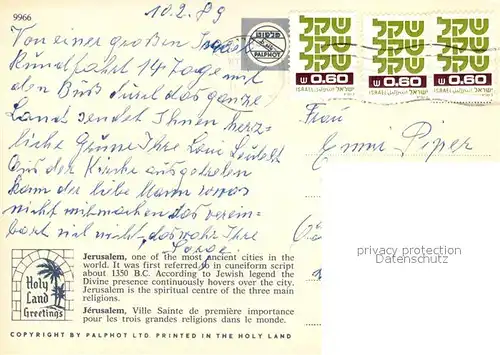 9966
10.2.89
Von einer großen Israel
Rundfahrt 14 Tage mit
den Bus durch das ganze
Land sendet Ihnen herz-
liche Grüße Ihre
Aus der Kirche ausgetreten
kann der liebe Mann sowas
nicht mitmachen das verein-
bart viel nicht, das wahr Ihre
Sorge.
PALPHOT
שקל שקל שקל
שקל שקל שקל
שקל שקל שקל
0.60 0.60 0.60
ISRAEL ישראל
Frau
Emmi Piper
privacy protection
Datenschutz
Holy
Land
Greetings
Jerusalem, one of the most ancient cities in the
world. It was first referred to in cuneiform script
about 1350 B.C. According to Jewish legend the
Divine presence continuously hovers over the city.
Jerusalem is the spiritual centre of the three main
religions.
Jérusalem, Ville Sainte de première importance
pour les trois grandes religions dans le monde.
COPYRIGHT BY PALPHOT LTD. PRINTED IN THE HOLY LAND